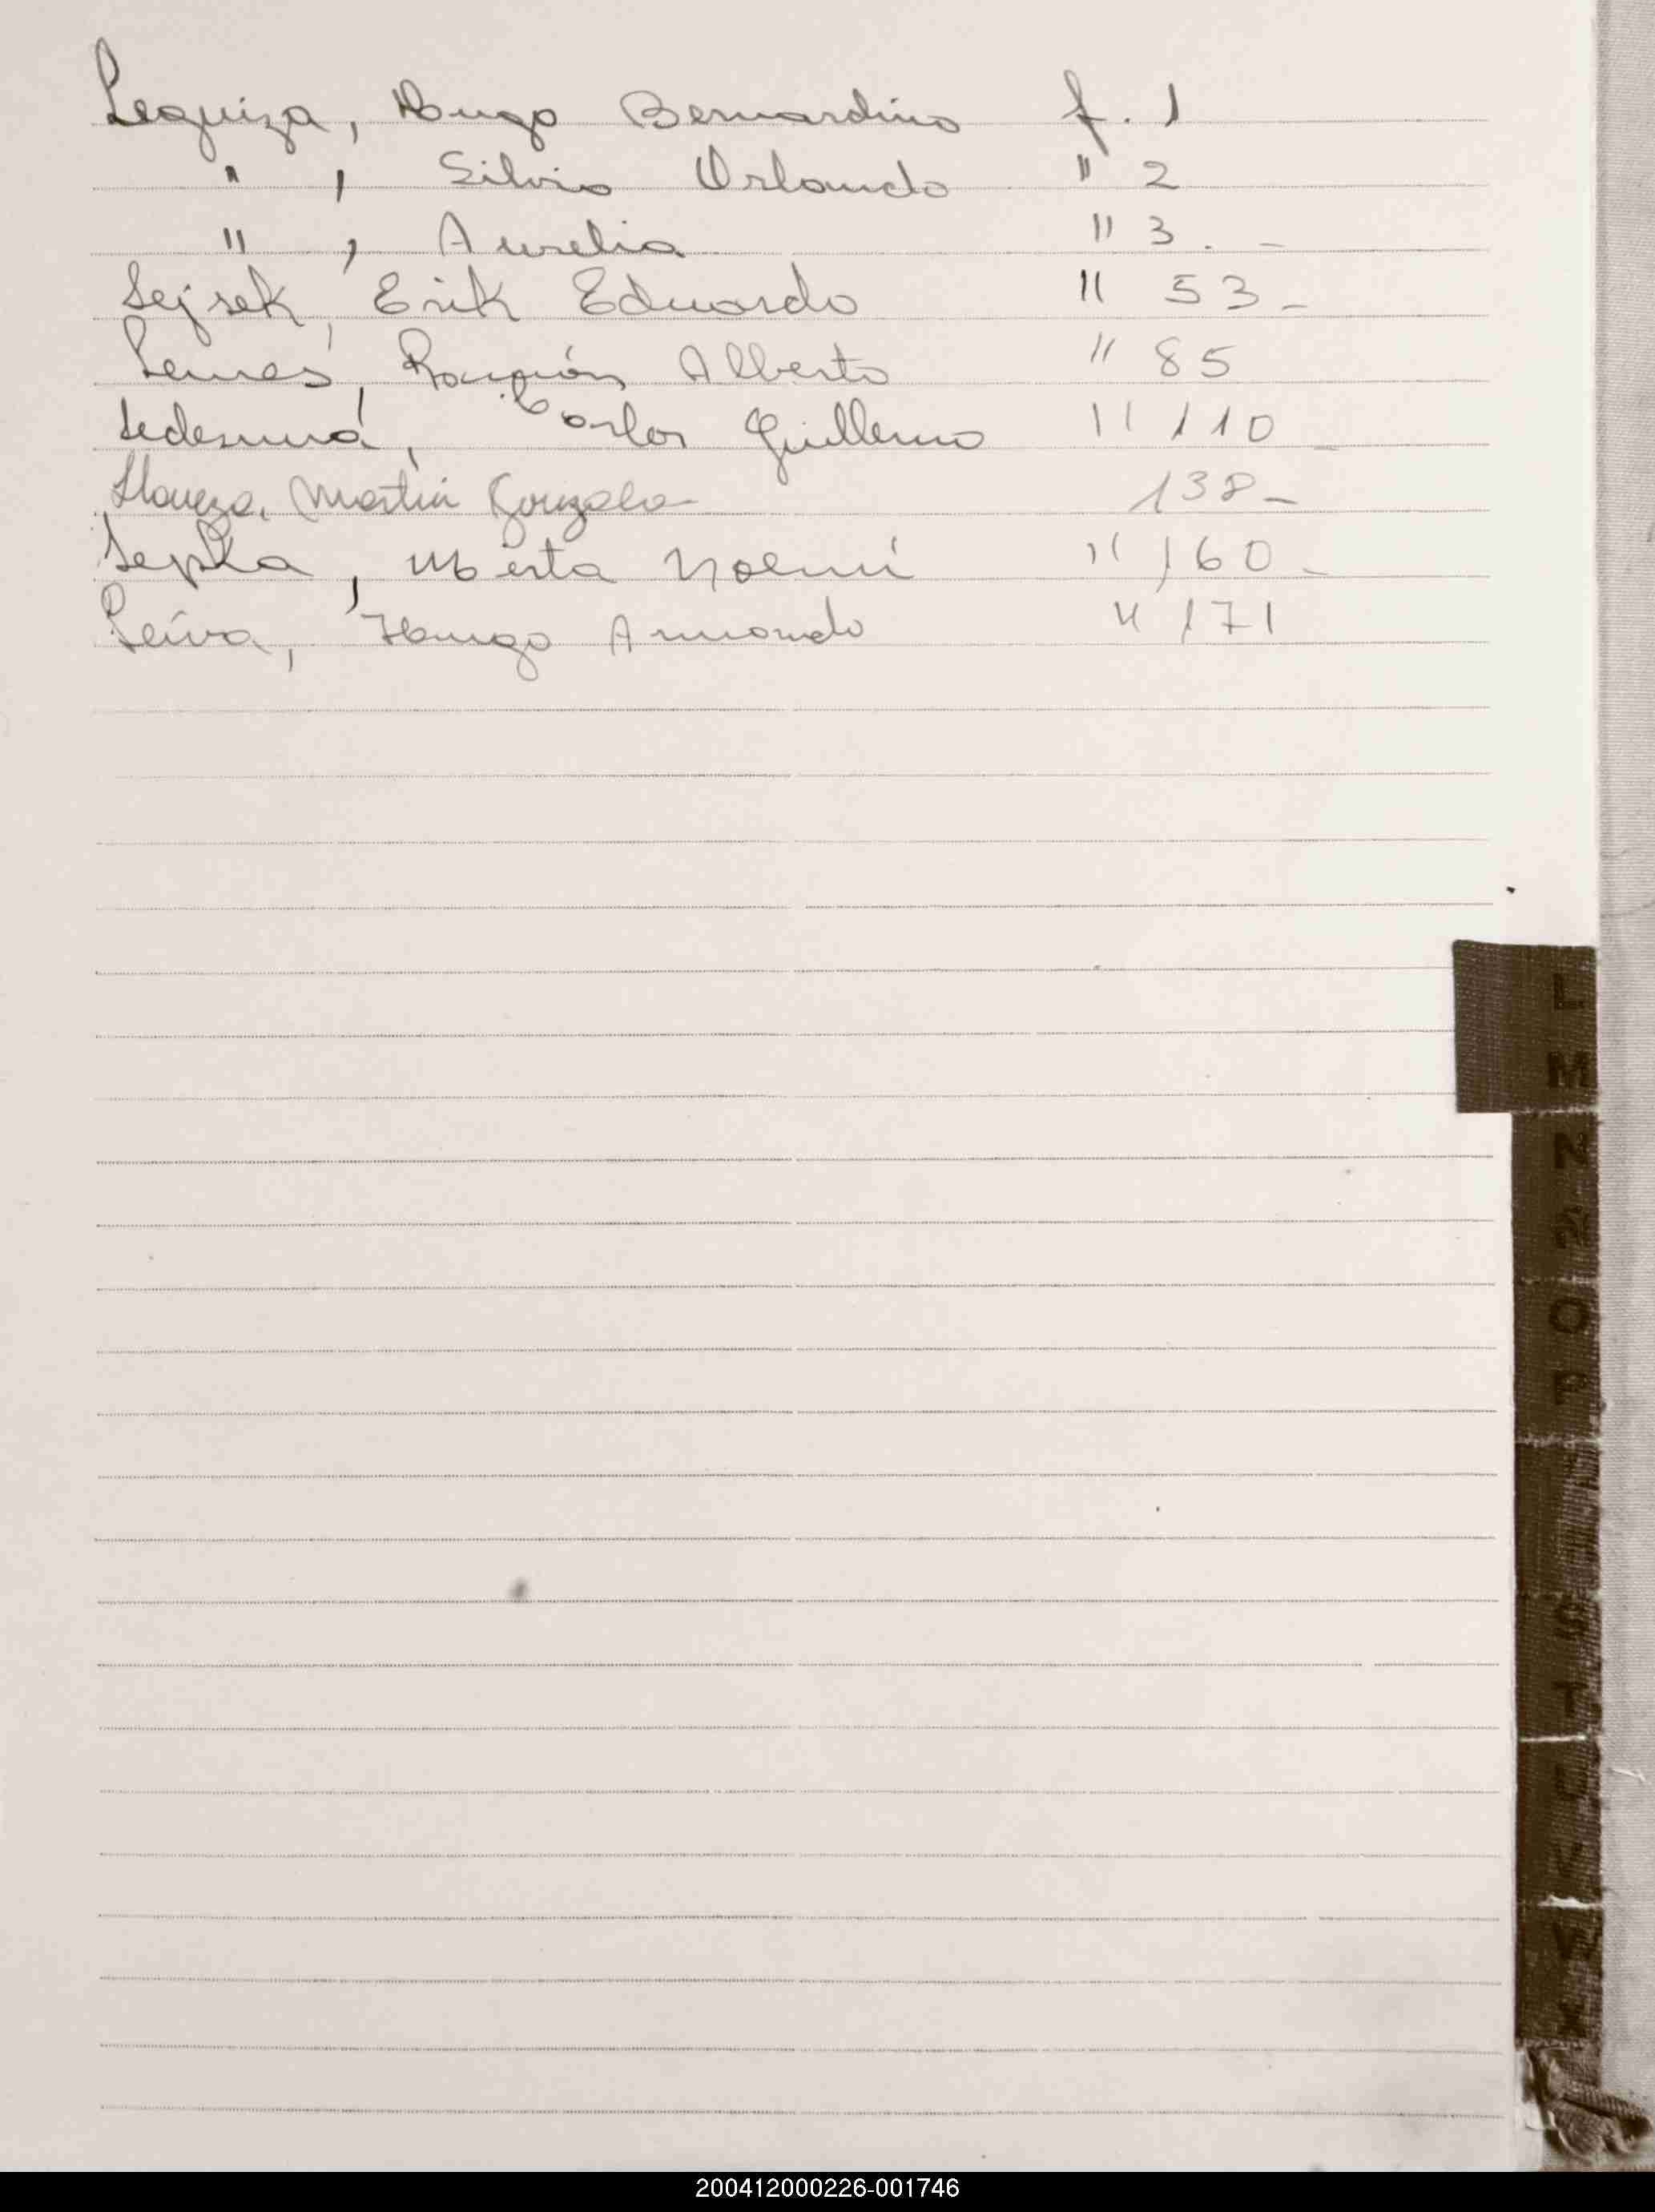 Leguiza, Hugo Bernardino f. 1
" , Silvio Orlando " 2
" , Aurelia " 3. -
Lejsek, Erik Eduardo " 53 -
Lemes, Ramón Alberto " 85
Ledesma, Carlos Guillermo " 110 -
Martín Gonzalo 138 -
Mirta Noemí " 160 -
Leiva, Hugo Armando " 171
L
M
N
Ñ
O
P
S
T
U
V
Y
X
200412000226-001746